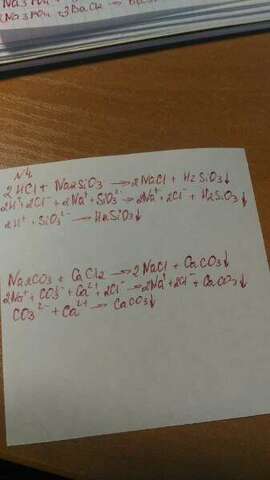 Na₃PO₄ + 3BaCl₂ →
N4.
2HCl + Na₂SiO₃ → 2NaCl + H₂SiO₃↓
2H⁺ + 2Cl⁻ + 2Na⁺ + SiO₃²⁻ → 2Na⁺ + 2Cl⁻ + H₂SiO₃↓
2H⁺ + SiO₃²⁻ → H₂SiO₃↓
Na₂CO₃ + CaCl₂ → 2NaCl + CaCO₃↓
2Na⁺ + CO₃²⁻ + Ca²⁺ + 2Cl⁻ → 2Na⁺ + 2Cl⁻ + CaCO₃↓
CO₃²⁻ + Ca²⁺ → CaCO₃↓